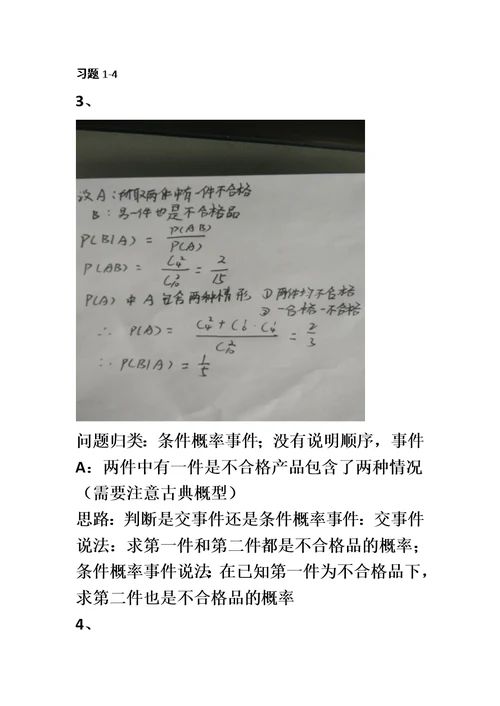 习题 1-4
3、
设A：所取两件中有一件不合格
B：另一件也是不合格品
P(B|A) = P(AB) / P(A)
P(AB) = C₄² / C₁₀² = 2/15
P(A) 中 A包含两种情形 ① 两件均不合格
② 一合格一不合格
∴ P(A) = (C₄² + C₆¹·C₄¹) / C₁₀² = 2/3
∴ P(B|A) = 1/5
问题归类：条件概率事件；没有说明顺序，事件
A：两件中有一件是不合格产品包含了两种情况
（需要注意古典概型）
思路：判断是交事件还是条件概率事件：交事件
说法：求第一件和第二件都是不合格品的概率；
条件概率事件说法：在已知第一件为不合格品下，
求第二件也是不合格品的概率
4、